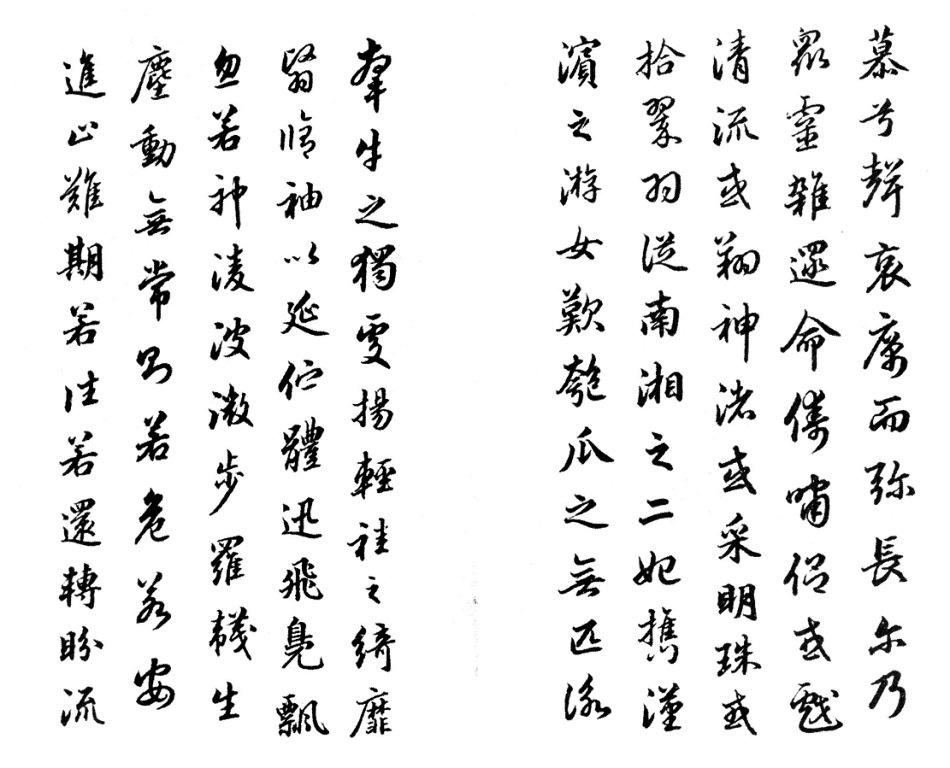 慕兮聲哀厲而弥長尔乃
眾靈雜遝命儔嘯侶或戲
清流或翔神渚或采明珠或
拾翠羽從南湘之二妃攜漢
濱之游女歎匏瓜之無匹詠
牽牛之獨處揚輕袿之綺靡
翳脩袖以延佇體迅飛鳧飄
忽若神淩波微步羅韈生
塵動無常則若危若安
進止難期若往若還轉盼流